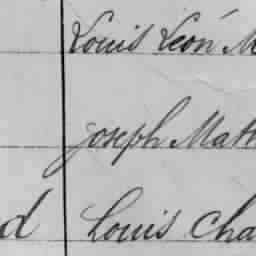 Louis Léon M
Joseph Math
d Louis Cha